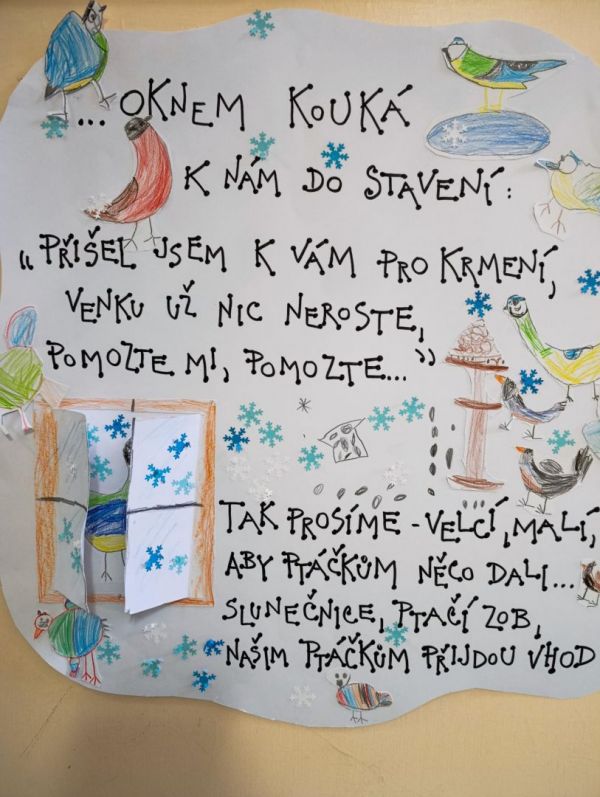 ...OKNEM KOUKÁ
K NÁM DO STAVENÍ:
„PŘIŠEL JSEM K VÁM PRO KRMENÍ,
VENKU UŽ NIC NEROSTE,
POMOZTE MI, POMOZTE..."
TAK PROSÍME - VELCÍ, MALÍ,
ABY PTÁČKŮM NĚCO DALI...
SLUNEČNICE, PTAČÍ ZOB,
NAŠIM PTÁČKŮM PŘIJDOU VHOD